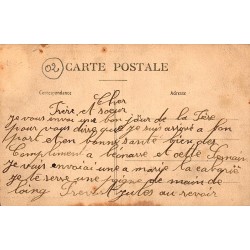 02
CARTE POSTALE
Correspondance Adresse
Cher
Frère et soeur
je vous envoi une bon jour de la Fère
pour vous dire que je suis arrivé a bon
port et en bonne santé bien des
Compliment a et celle
je vous envoiai une a marie la
je te serre une poigne de main de
loing Jules au revoir